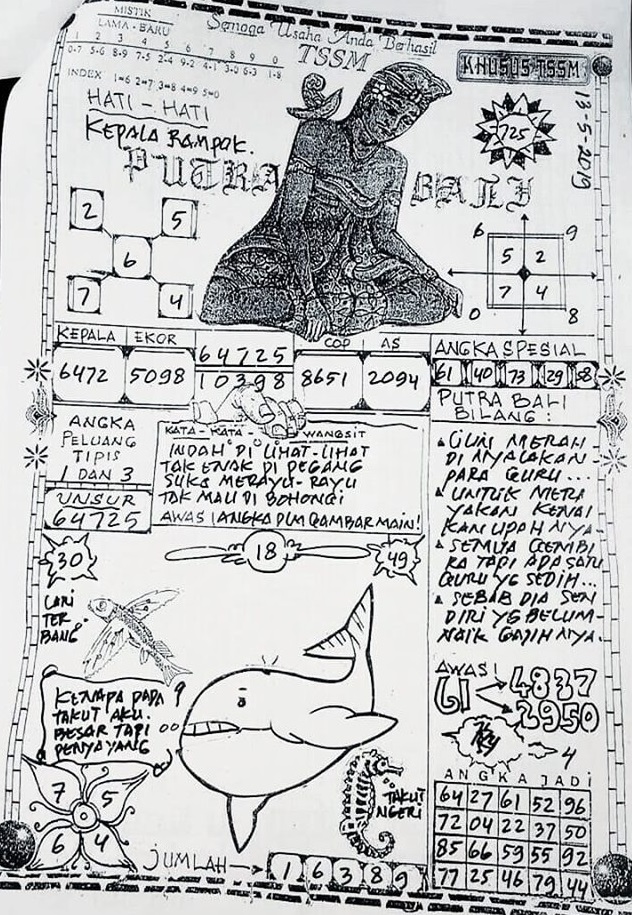 MISTIK
LAMA - BARU
1 2 3 4 5 6 7 8 9 0
0-7 5-6 8-9 7-5 2-4 9-2 4-1 3-0 6-3 1-8
INDEX 1=6 2=7 3=8 4=9 5=0
Semoga Usaha Anda Berhasil
TSSM
KHUSUS TSSM
13-5-2019
725
HATI - HATI
KEPALA RAMPAK.
PUTRA BALI
2 5
6
7 4
6 9
5 2
7 4
0 8
KEPALA EKOR
6472 5098
64725
10398
COP AS
8651 2094
ANGKA SPESIAL
61 40 73 29 58
ANGKA
PELUANG
TIPIS
1 DAN 3
UNSUR
64725
KATA - KATA - WANGSIT
INDAH DI LIHAT-LIHAT
TAK ENAK DI PEGANG
SUKA MERAYU-RAYU
TAK MAU DI BOHONGI
AWAS 1 ANGKA DLM GAMBAR MAIN!
PUTRA BALI
BILANG:
LILIN MERAH
DI NYALAKAN
PARA GURU...
UNTUK MERA
YAKAN KENAI
KAN UPAH NYA
SEMUA GEMBI
RA TAPI ADA SATU
GURU YG SEDIH...
SEBAB DIA SEN
DIRI YG BELUM
NAIK GAJIH NYA.
30 18 49
LARI
TER
BANG
KENAPA PADA
TAKUT AKU.
BESAR TAPI
PENYAYANG
?
TAKUT
NGERI
AWAS!
61 4837
2950
4
7 5
6 4
JUMLAH 1 6 3 8 9
ANGKA JADI
64 27 61 52 96
72 04 22 37 50
85 66 59 55 92
77 25 46 79 44